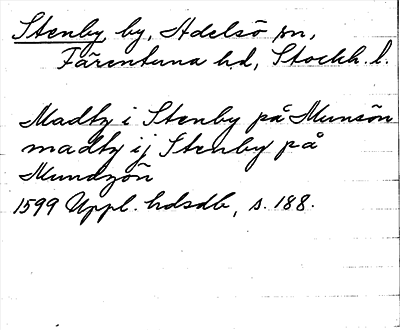 Stenby, by, Adelsö sn,
Färentuna hd, Stockh. l.
Madtz i Stenby på Munsön
madtz ij Stenby på
Mundzön
1599 Uppl. hdsdb, s. 188.